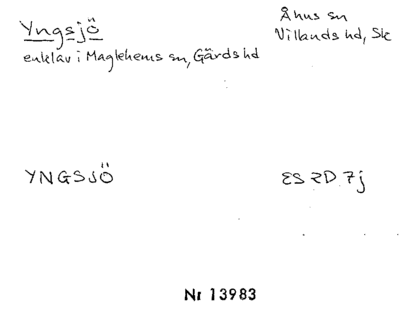 Yngsjö
enklav i Maglehems sn, Gärds hd
Åhus sn
Villands hd, Sk
YNGSJÖ
ES 2D 7j
Nr 13983